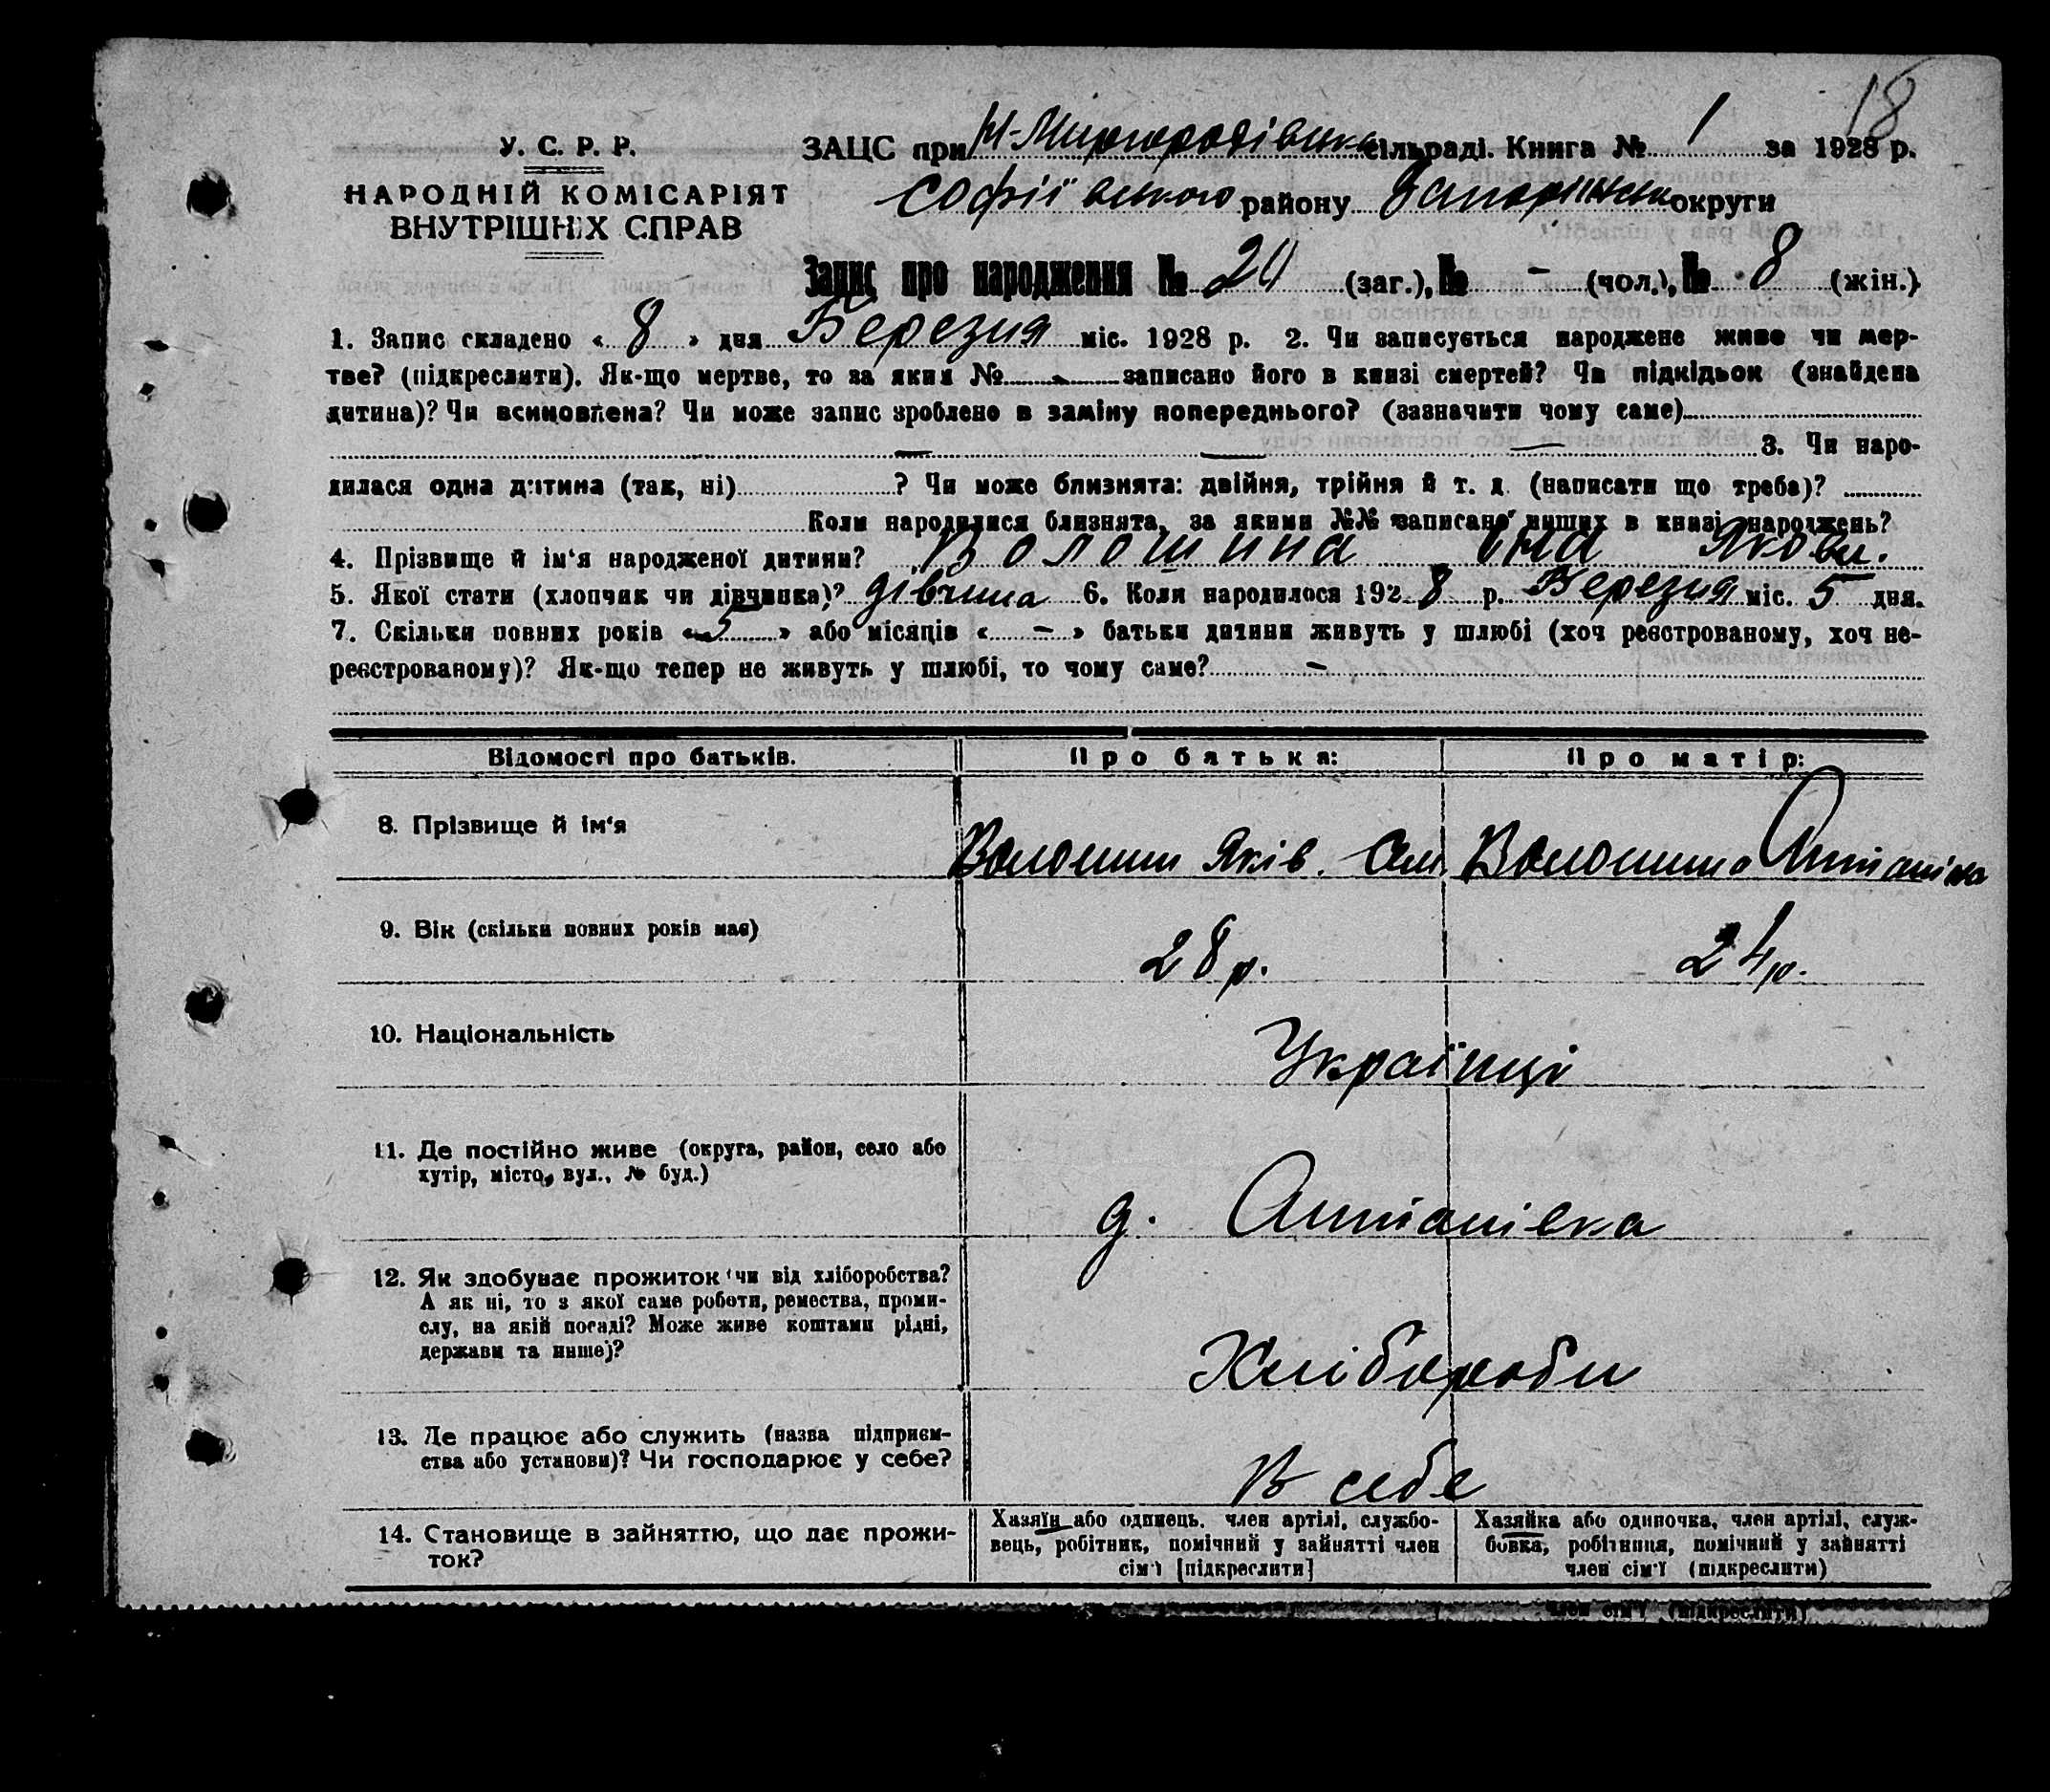 18
У. С. Р. Р.
НАРОДНІЙ КОМІСАРІЯТ
ВНУТРІШНІХ СПРАВ
ЗАЦС при Н-Миргородівська сільраді. Книга № 1 за 1928 р.
Софіївського району Запоріжськ округи
Запис про народження № 20 (заг.), № - (чол.), № 8 (жін.)
1. Запис складено « 8 » дня Березня міс. 1928 р. 2. Чи записується народжене живе чи мер-
тве? (підкреслити). Як-що мертве, то за яким № - записано його в книзі смертей? Чи підкідьок (знайдена
дитина)? Чи всиновлена? Чи може запис зроблено в заміну попереднього? (зазначити чому саме)
— — — 3. Чи наро-
дилася одна дитина (так, ні) ? Чи може близнята: двійня, трійня й т. д. (написати що треба)?
Коли народилися близнята, за якими №№ записано инших в книзі народжень?
4. Прізвище й ім‘я народженої дитини? Волошина Яковл.
5. Якої стати (хлопчик чи дівчинка)? дівчина 6. Коли народилося 1928 р. Березня міс. 5 дня.
7. Скільки повних років « 5 » або місяців « - » батьки дитини живуть у шлюбі (хоч реєстрованому, хоч не-
реєстрованому)? Як-що тепер не живуть у шлюбі, то чому саме? -
Відомості про батьків. Про батька: Про матір:
8. Прізвище й ім‘я Волошин Яків. Сем. Волошина
9. Вік (скільки повних років має) 28 р. 24 р.
10. Національність Українці
11. Де постійно живе (округа, район, село або
хутір, місто, вул., № буд.)
д. Антанівка
12. Як здобуває прожиток чи від хліборобства?
А як ні, то з якої саме роботи, ремества, проми-
слу, на якій посаді? Може живе коштами рідні,
держави та инше)?
Хлібороби
13. Де працює або служить (назва підприєм-
ства або установи)? Чи господарює у себе?
В себе
14. Становище в зайняттю, що дає прожи-
ток?
Хазяїн або одинець, член артілі, службо-
вець, робітник, помічний у зайнятті член
сім‘ї [підкреслити]
Хазяйка або одиночка, член артілі, служ-
бовка, робітниця, помічний у зайнятті
член сім‘ї (підкреслити)
член сім‘ї (підкреслити)